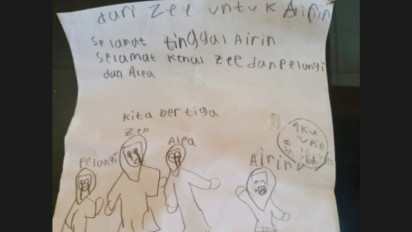 dari Zee untuk Airin
Selamat tinggal Airin
Selamat kenal Zee dan Pelangi
dan Alea
kita bertiga
Zee
Alea
Pelangi
Airin
aku